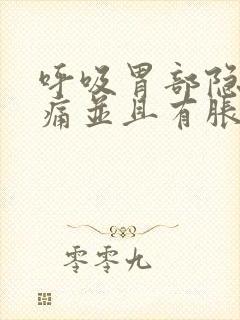 呼吸胃部隐
痛並且有脹
零零九